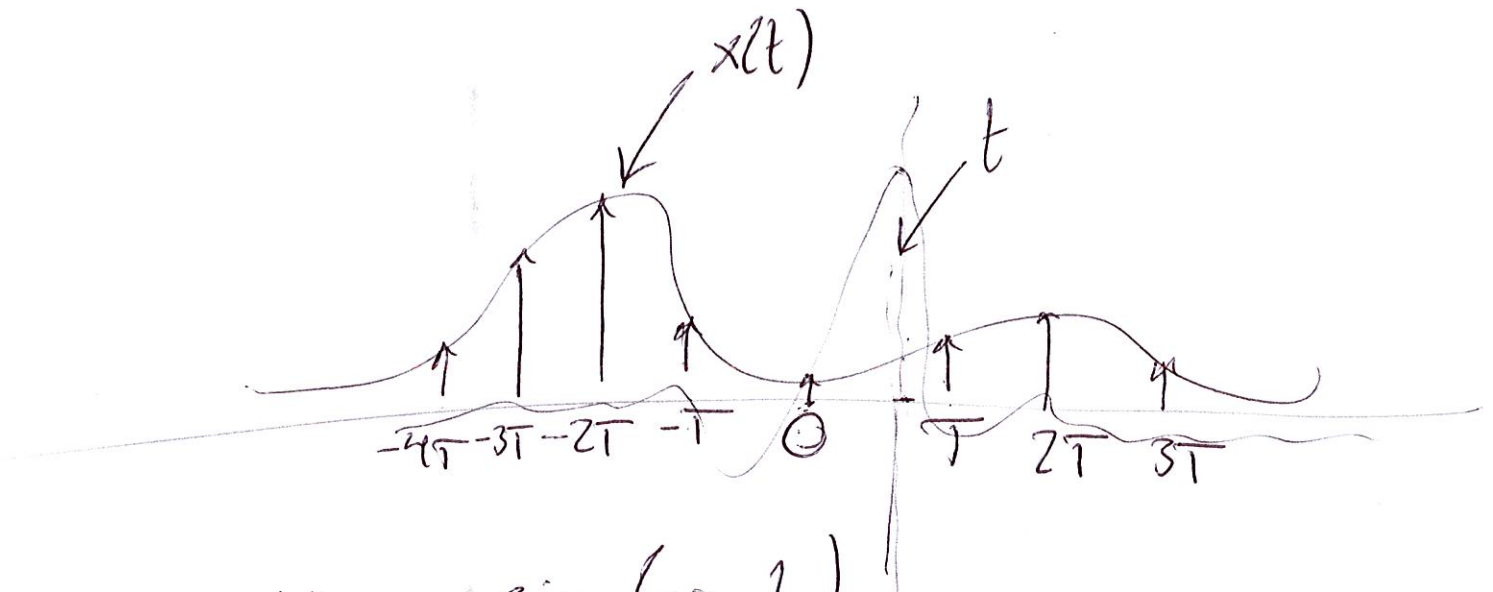 x(t)
t
-4T -3T -2T -T 0 T 2T 3T